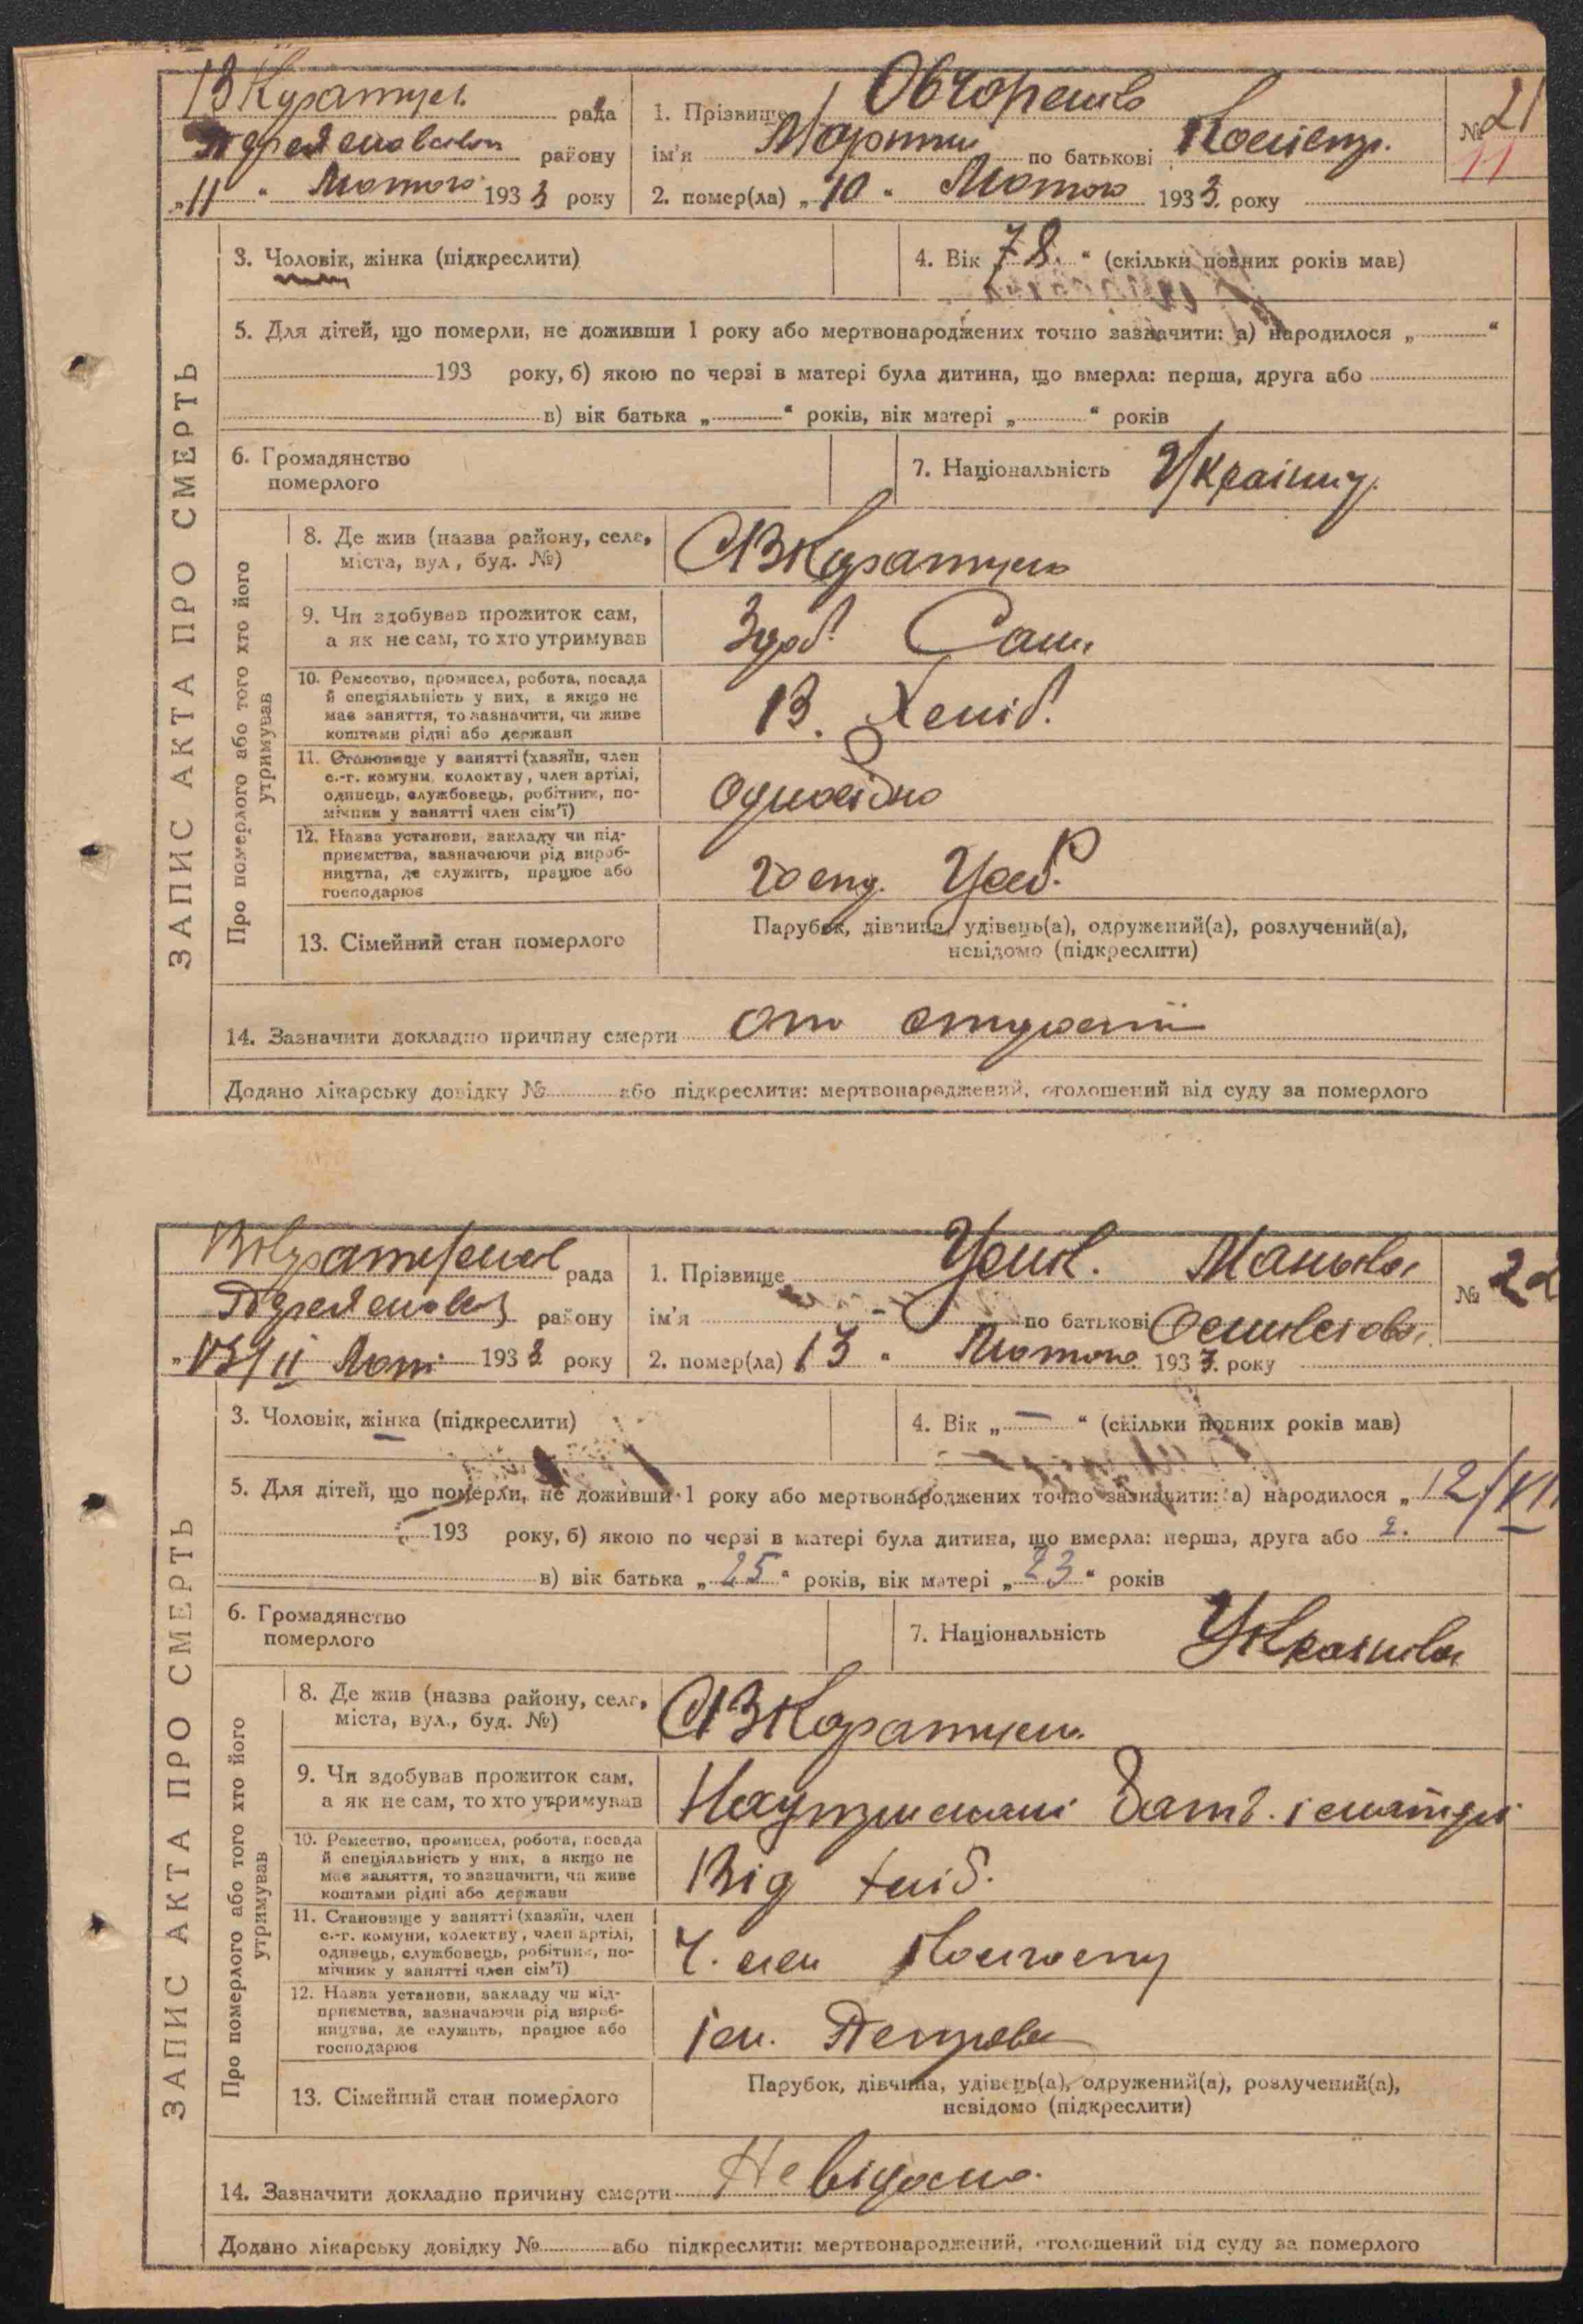 рада
району
„11“ Лютого 1933 року
1. Прізвище
ім'я Мартин по батькові
2. помер(ла) „10“ Лютого 1933 року
№ 21
11
ЗАПИС АКТА ПРО СМЕРТЬ
3. Чоловік, жінка (підкреслити)
4. Вік „78“ (скільки повних років мав)
5. Для дітей, що померли, не доживши 1 року або мертвонароджених точно зазначити: а) народилося „ “
193 року, б) якою по черзі в матері була дитина, що вмерла: перша, друга або
в) вік батька „ “ років, вік матері „ “ років
6. Громадянство
померлого
7. Національність
Про померлого або того хто його
утримував
8. Де жив (назва району, села,
міста, вул, буд. №)
9. Чи здобував прожиток сам,
а як не сам, то хто утримував
Сам
10. Ремество, промисел, робота, посада
й спеціяльність у них, а якщо не
має заняття, то зазначити, чи живе
коштами рідні або держави
11. Становище у занятті (хазяїн, член
с.-г. комуни, колектву, член артілі,
одинець, службовець, робітник, по-
мічник у занятті член сім'ї)
12. Назва установи, закладу чи під-
приємства, зазначаючи рід вироб-
ництва, де служить, працює або
господарює
13. Сімейний стан померлого
Парубок, дівчина, удівець(а), одружений(а), розлучений(а),
невідомо (підкреслити)
14. Зазначити докладно причину смерти от старости
Додано лікарську довідку № або підкреслити: мертвонароджений, оголошений від суду за померлого
рада
району
13/II Лют 1933 року
1. Прізвище
ім'я по батькові
2. помер(ла) 13 “ Лютого 1933 року
№ 22
ЗАПИС АКТА ПРО СМЕРТЬ
3. Чоловік, жінка (підкреслити)
4. Вік „—“ (скільки повних років мав)
5. Для дітей, що померли, не доживши 1 року або мертвонароджених точно зазначити: а) народилося „12/
193 року, б) якою по черзі в матері була дитина, що вмерла: перша, друга або 2.
в) вік батька „25“ років, вік матері „23“ років
6. Громадянство
померлого
7. Національність Українка
Про померлого або того хто його
утримував
8. Де жив (назва району, села,
міста, вул., буд. №)
9. Чи здобував прожиток сам,
а як не сам, то хто утримував
10. Ремество, промисел, робота, посада
й спеціяльність у них, а якщо не
має заняття, то зазначити, чи живе
коштами рідні або держави
Від хліб.
11. Становище у занятті (хазяїн, член
с.-г. комуни, колектву, член артілі,
одинець, службовець, робітник, по-
мічник у занятті член сім'ї)
12. Назва установи, закладу чи під-
приємства, зазначаючи рід вироб-
ництва, де служить, працює або
господарює
ім. Петровск
13. Сімейний стан померлого
Парубок, дівчина, удівець(а), одружений(а), розлучений(а),
невідомо (підкреслити)
14. Зазначити докладно причину смерти Невідомо.
Додано лікарську довідку № або підкреслити: мертвонароджений, оголошений від суду за померлого